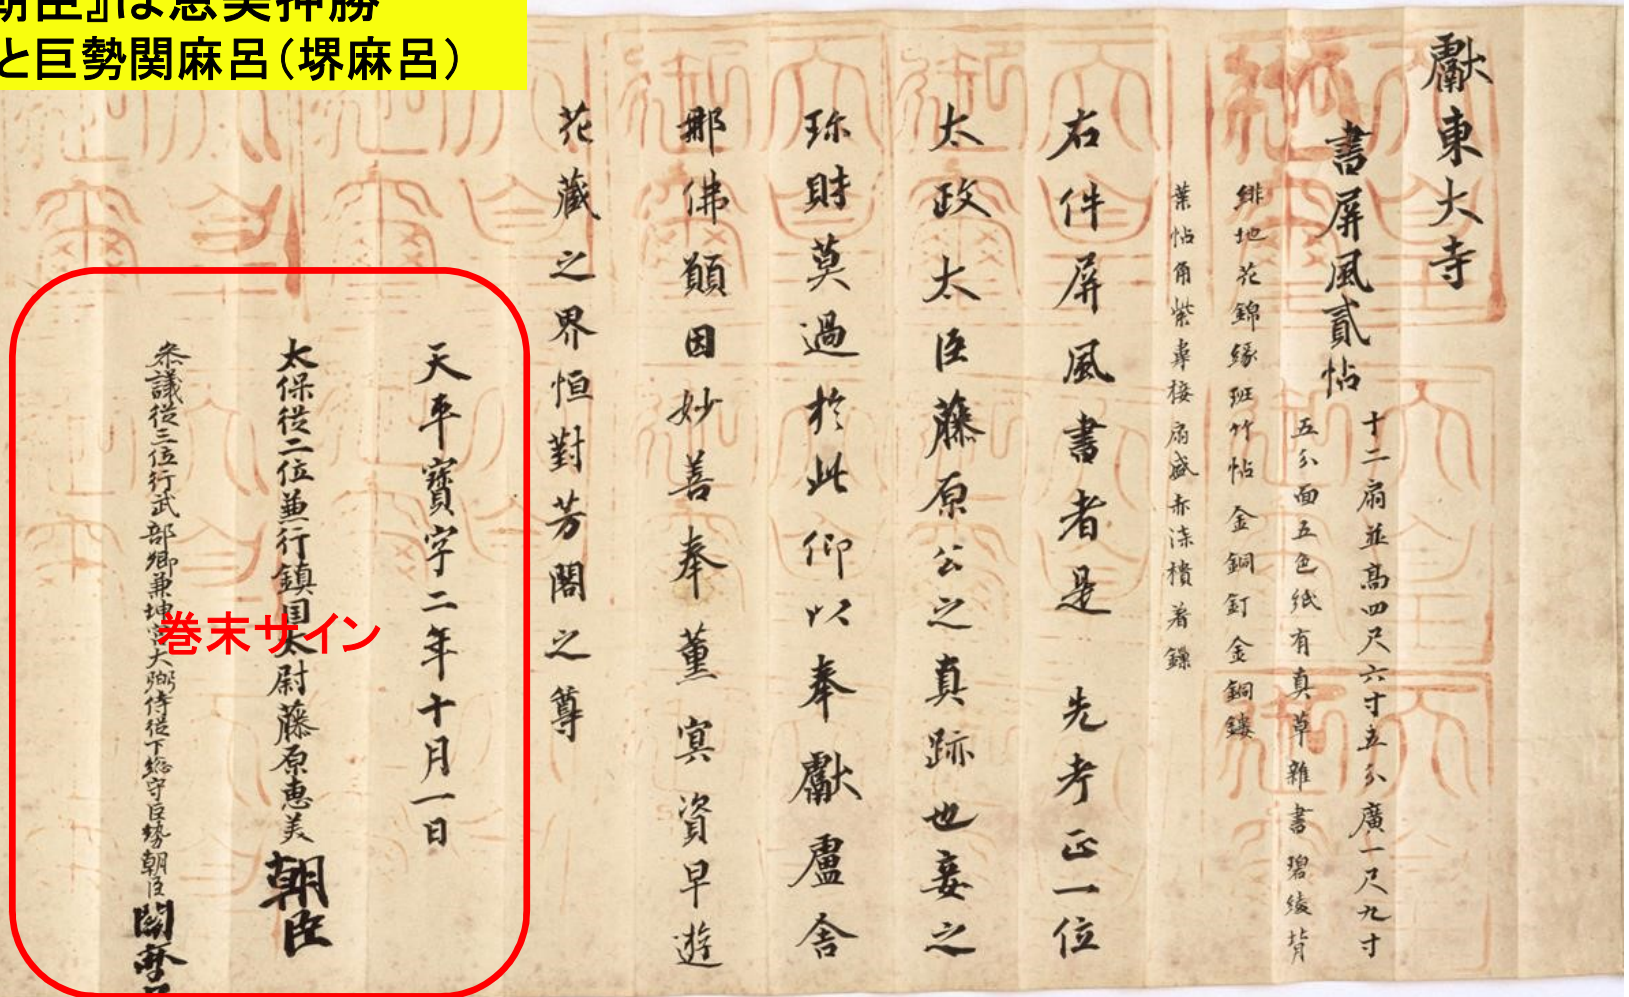 朝臣』は恵美押勝
と巨勢関麻呂(堺麻呂)
獻東大寺
書屏風貳帖
十二扇並高四尺六寸五分廣一尺九寸
五分面五色紙有真草雜書碧綾背
緋地花錦緣斑竹帖金銅釘金銅鏤
葉帖角紫皮接扇盛赤漆樻着鏁
右件屏風書者是 先考正一位
太政太臣藤原公之真跡也妾之
珎財莫過於此仰以奉獻盧舍
那佛願因妙善奉薫冥資早遊
花藏之界恒對芳閣之尊
天平寶字二年十月一日
太保從二位兼行鎮国太尉藤原惠美朝臣
參議從三位行武部卿兼坤宮大弼侍從下總守巨勢朝臣關麻
巻末サイン